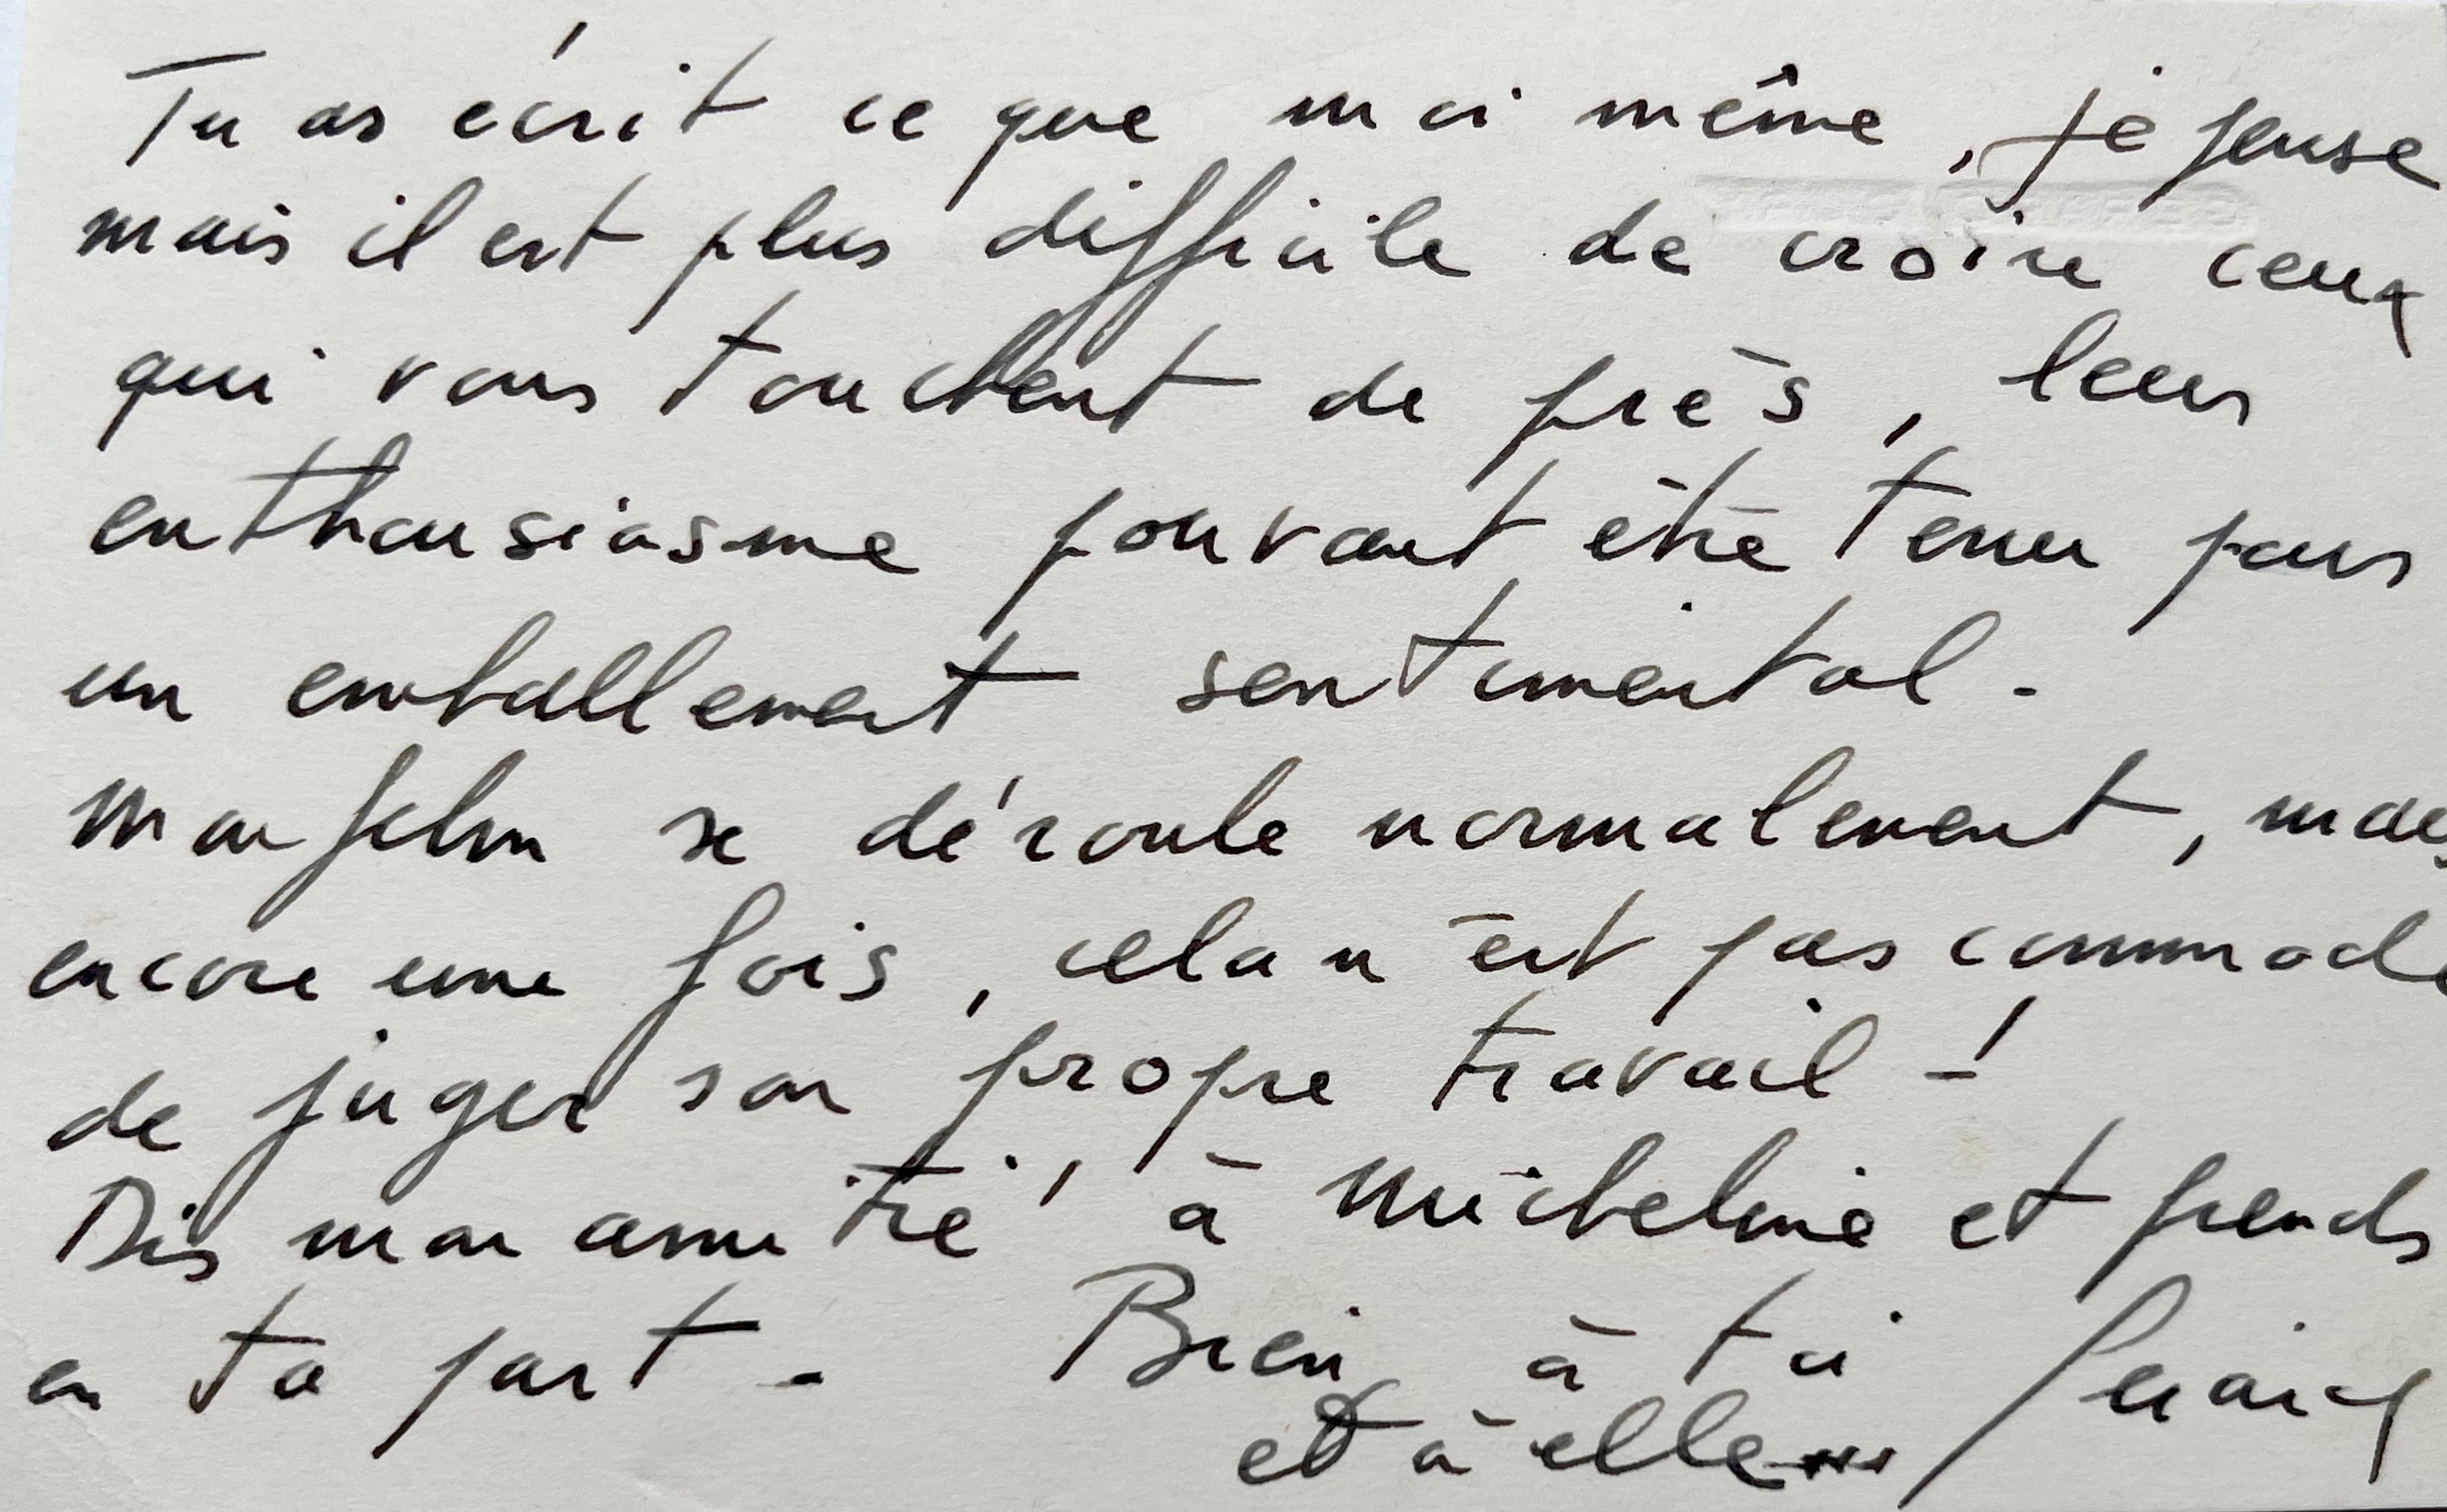 Tu as écrit ce que moi même, je pense
mais il est plus difficile de croire ceux
qui vous touchent de près, leur
enthousiasme pouvant être tenu pour
un emballement sentimental -
Mon film se déroule normalement, mais
encore une fois, cela n'est pas commode
de juger son propre travail - !
Dis mon amitié à Micheline et prends
en ta part - Bien à toi
et à elle